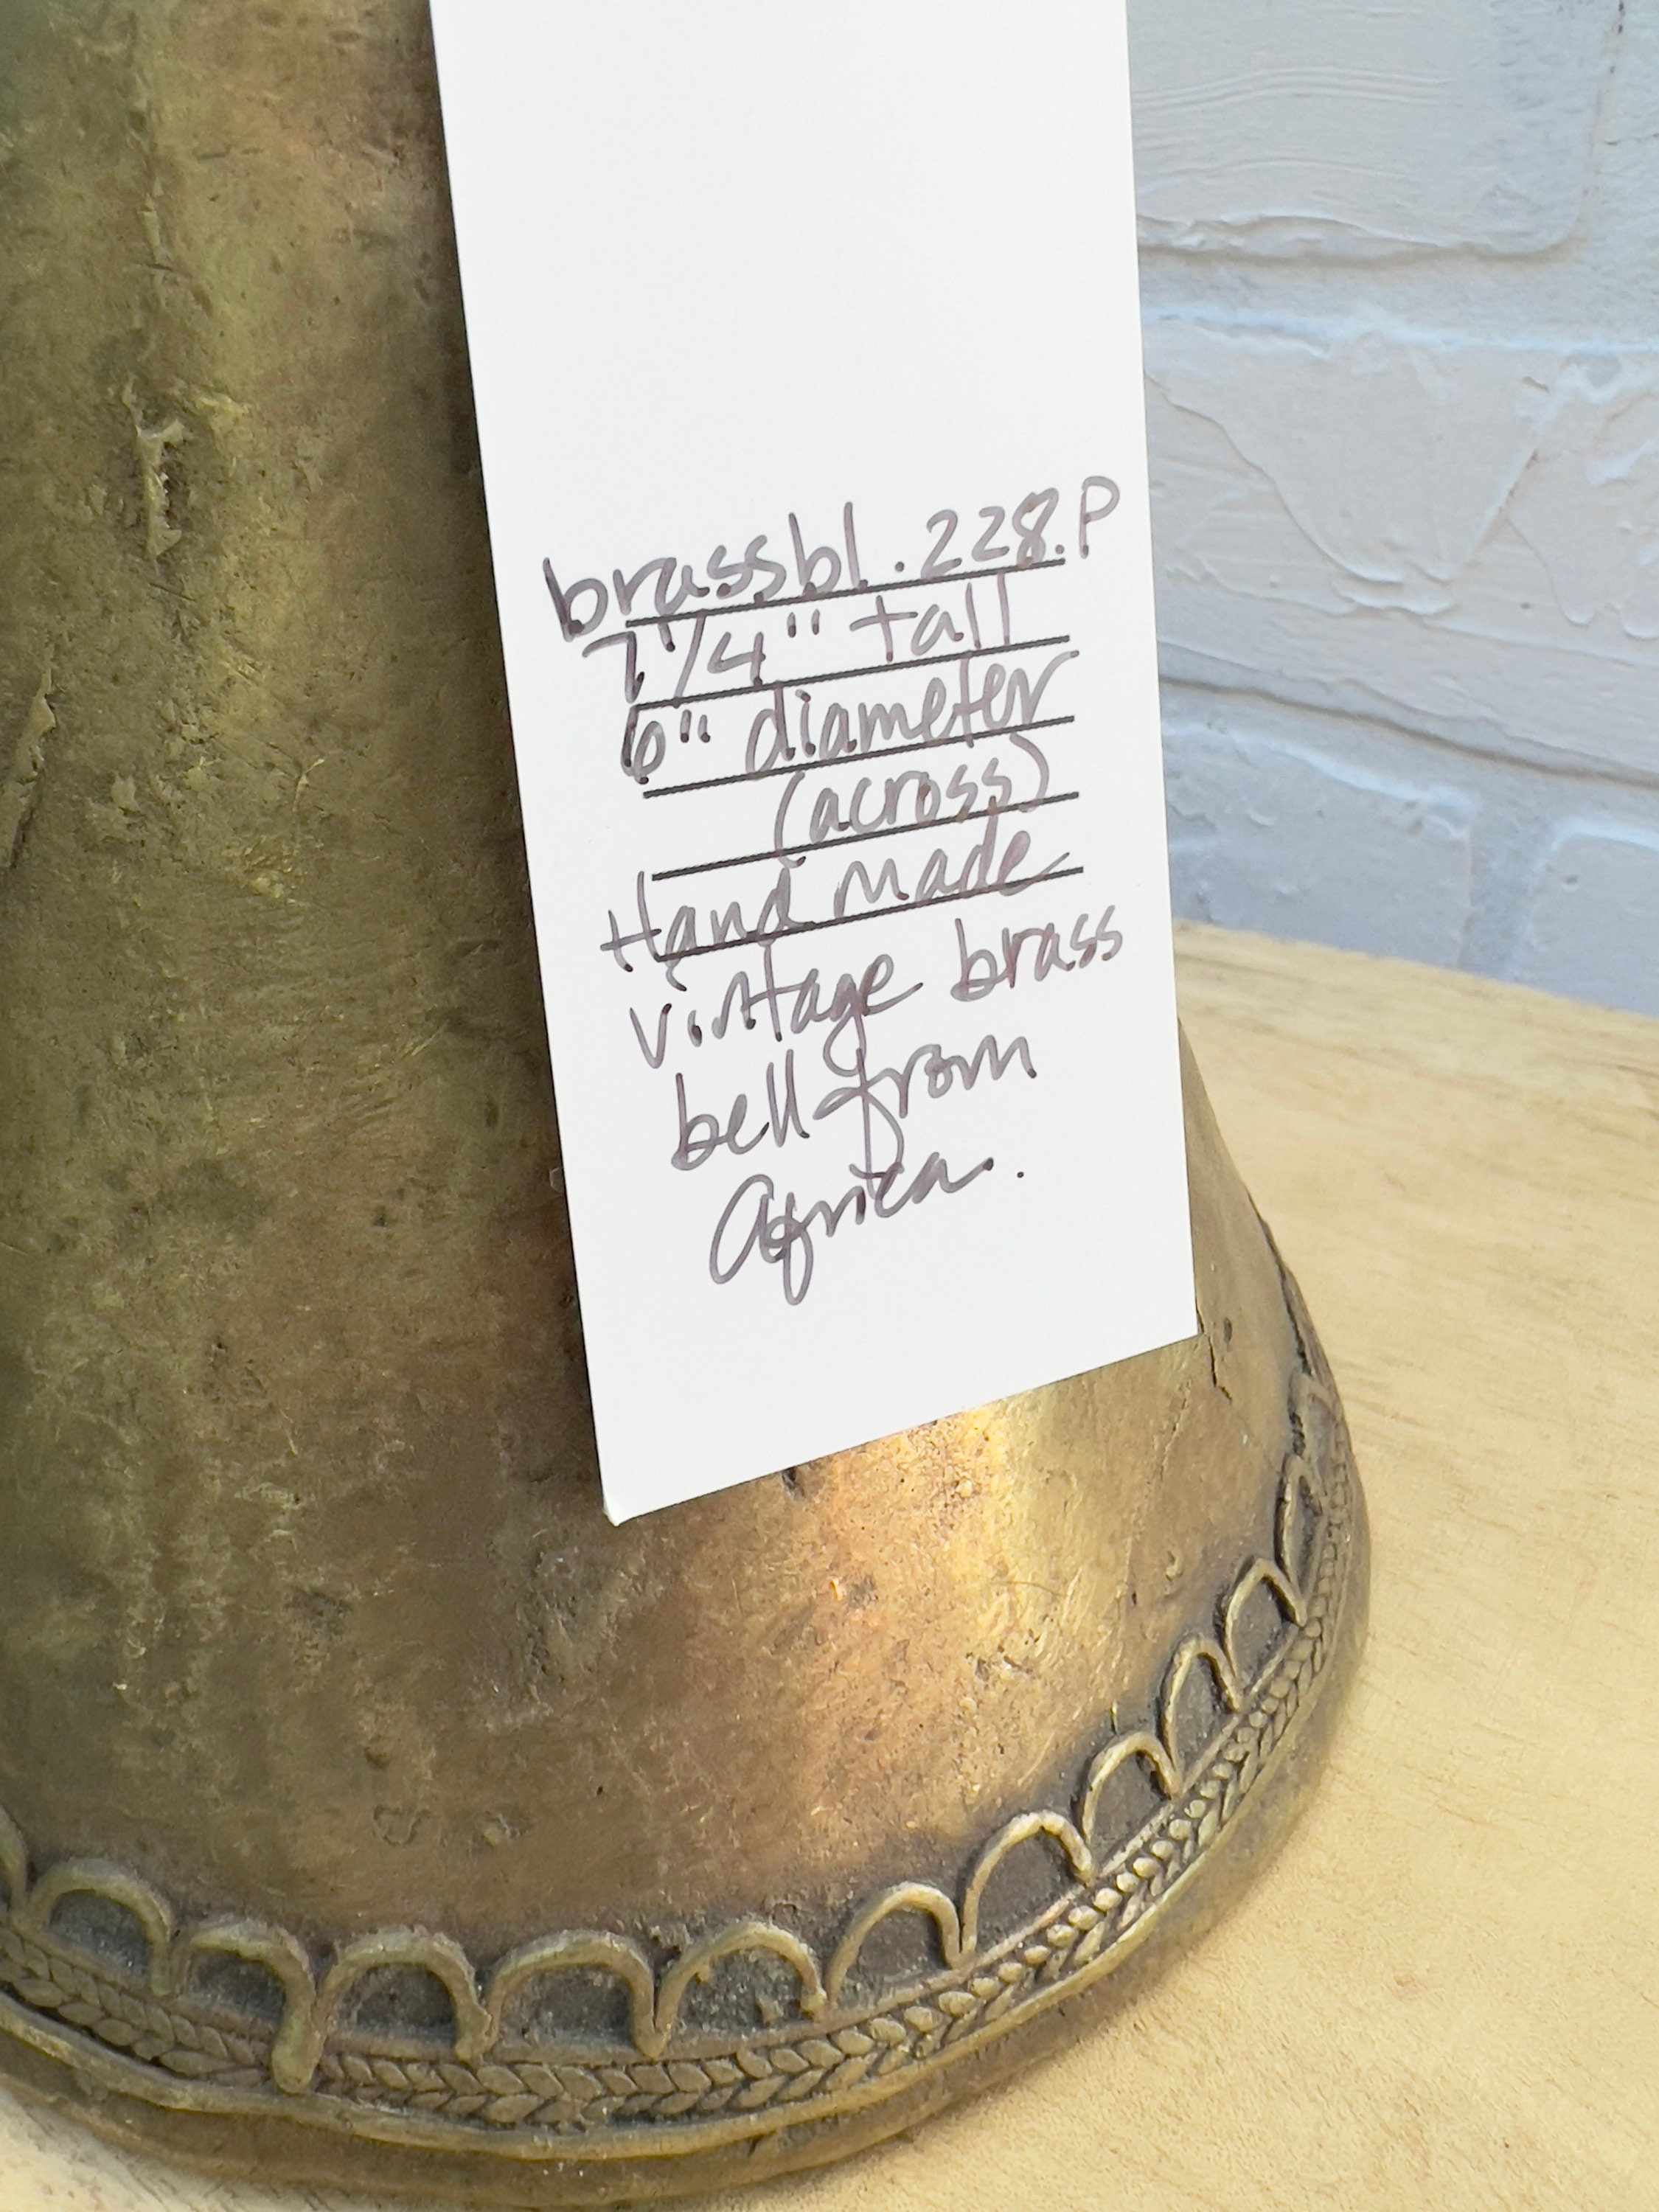 brassbl.228.P
7 1/4" tall
6" diameter
(across)
Hand made
vintage brass
bell from
Africa.